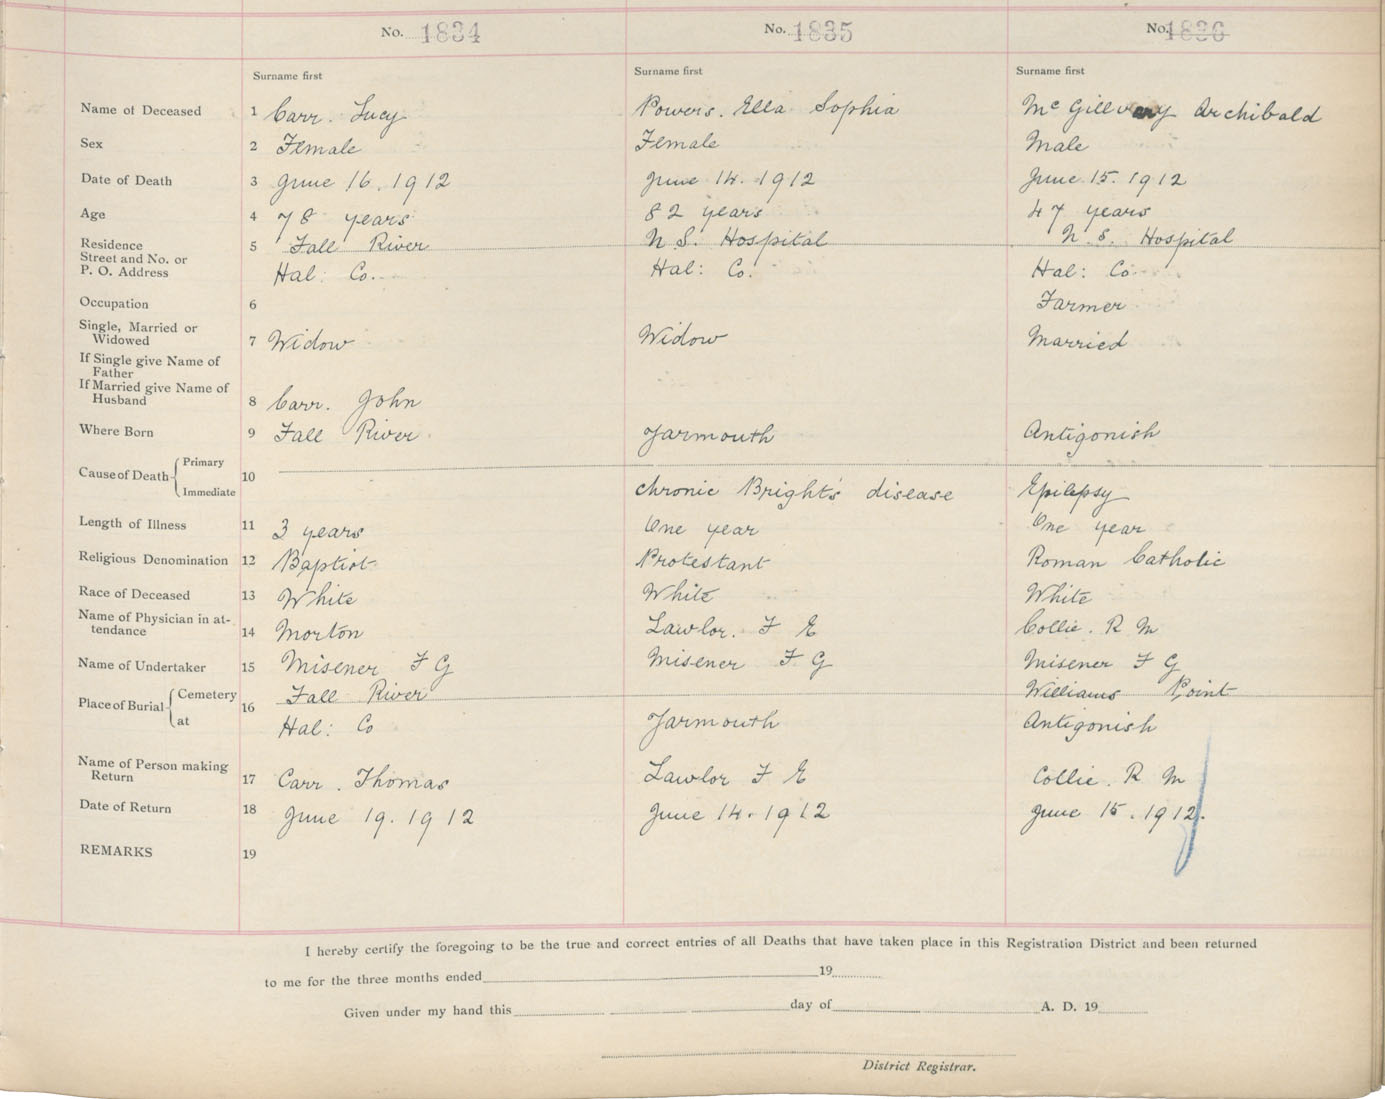 No. 1834 No. 1835 No. 1836
Surname first Surname first Surname first
Name of Deceased 1 Carr. Lucy Powers. Ella Sophia McGillvary Archibald
Sex 2 Female Female Male
Date of Death 3 June 16. 1912 June 14. 1912 June 15. 1912
Age 4 78 years 82 years 47 years
Residence 5 Fall River N S. Hospital N. S. Hospital
Street and No. or
P. O. Address Hal: Co. Hal: Co. Hal: Co
Occupation 6 Farmer
Single, Married or
Widowed 7 Widow Widow Married
If Single give Name of
Father
If Married give Name of
Husband 8 Carr. John
Where Born 9 Fall River Yarmouth Antigonish
Cause of Death Primary 10
Immediate chronic Bright's disease Epilepsy
Length of Illness 11 3 years One year One year
Religious Denomination 12 Baptist Protestant Roman Catholic
Race of Deceased 13 White White White
Name of Physician in at-
tendance 14 Morton Lawlor. F E Collie. R M
Name of Undertaker 15 Misener F G Misener F G Misener F G
Place of Burial Cemetery 16 Fall River Williams Point
at Hal: Co Yarmouth Antigonish
Name of Person making
Return 17 Carr. Thomas Lawlor F E Collie. R M
Date of Return 18 June 19. 1912 June 14. 1912 June 15. 1912.
REMARKS 19
I hereby certify the foregoing to be the true and correct entries of all Deaths that have taken place in this Registration District and been returned
to me for the three months ended 19
Given under my hand this day of A. D. 19
District Registrar.